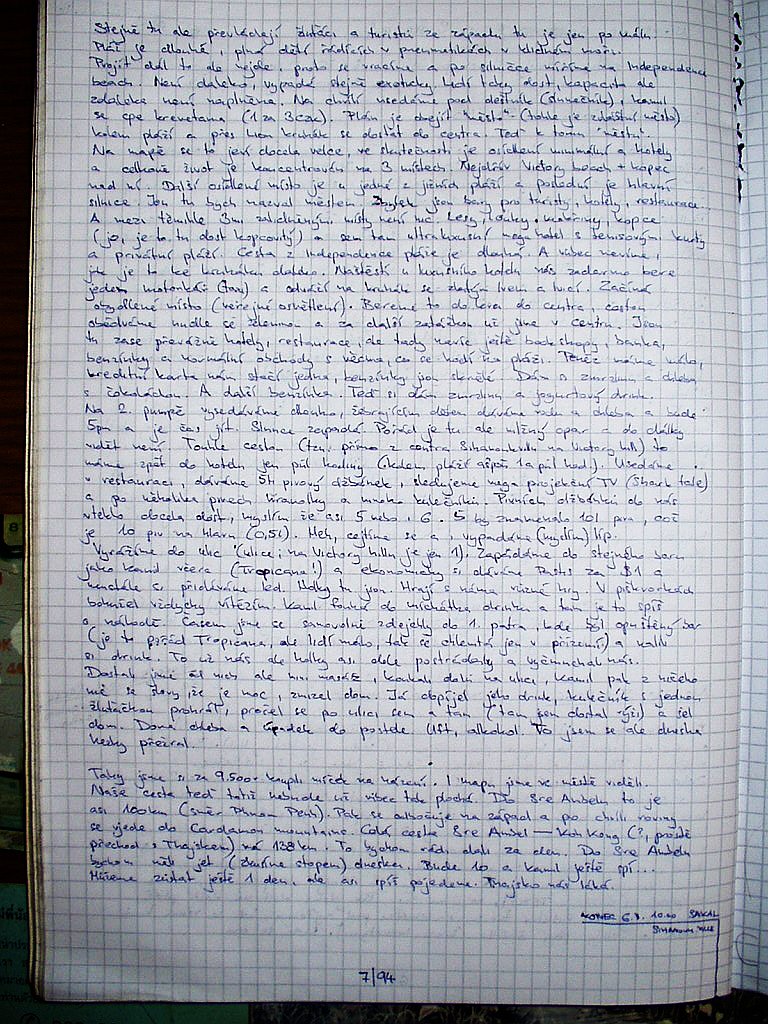 Stejně tu ale převládají žluťáci a turistů ze západu tu je jen po málu.
Pláž je dlouhá, plná dětí řádících v pneumatikách v klidném moři.
Projít dál to ale nejde, proto se vracíme a po silničce míříme na Independence
beach. Není daleko, vypadá stejně exoticky, lidí taky dost, kapacita ale
zdaleka není naplněna. Na chvíli usedáme pod deštník (slunečník), kamil
se cpe krevetama (1 za 3czk). Plán je obejít "město" (tohle je zvláštní město)
kolem pláží a přes lion kruhák se dostat do centra. Teď k tomu "městu".
Na mapě se to jeví docela velce, ve skutečnosti je osídlení minimální a hotely
a celkově život je koncentrován na 3 místech. Nejdřív Victory beach + kopec
nad ní. Další osídlené místo je u jedné z jižních pláží a poslední je hlavní
silnice. Jen tu bych nazval městem. Zbytek jsou bary pro turisty, hotely, restaurace.
A mezi těmihle 3mi zalidněnými místy není nic. Lesy, louky, kopce
(jo, je to tu dost kopcovitý) a sem tam ultraluxusní megahotel s tenisovými kurty
a privátní pláží. Cesta z Independence pláže je dlouhá. A vůbec nevíme,
jak je to ke kruháku daleko. Naštěstí u luxusního hotelu nás zadarmo bere
jeden motorkář (taxi) a odváží na kruháč se zlatým lvem a lvicí. Začíná
osydlené místo (veřejné osvětlení). Bereme to doleva do centra, cestou
obědváme nudle se zeleninou a za další zatáčkou už jsme v centru. Jsou
tu zase převážně hotely, restaurace, ale tady navíc ještě bookshopy, banka,
benzínky a normální obchody s věcma, co se hodí na pláži. Peněz máme málo,
kreditní karta nám stačí jedna, benzínky jsou skvělé. Dám si zmrzlinu a chleba
s čokoládou. A další benzínka. Teď si dám zmrzlinu a jogurtový drink.
Na 2. pumpě vysedáváme dlouho, žebrajícím dětem dáváme vodu a chleba a bude
5pm a je čas jít. Slunce zapadá. Pořád je tu ale mlžný opar a do dálky
vidět není. Touhle cestou (tzn. přímo z centra Sihanoukvillu na Victory hill) to
máme zpět do hotelu jen půl hodiny (kolem pláží aspoň 1 a půl hod.). Usedáme
v restauraci, dáváme 5ti pivový džbánek, sledujeme mega projekční TV (Shark tale)
a po několika pivech hranolky a mnoho kulečníků. Pivních džbánků do nás
vteklo docela dost, myslím že asi 5 nebo i 6. 5 by znamenalo 10l piva, což
je 10 piv na hlavu (0,5l). Heh, cejtíme se a i vypadáme (myslím) líp.
Vyrážíme do ulic (ulice: na Victory hillu je jen 1). Zapadáme do stejného baru
jako kamil včera (Tropicana!) a ekonomicky si dáváme Pastis za $1 a
neustále si přidáváme led. Holky tu jsou. Hrají s náma různé hry. V piškvorkách
bohužel vždycky vítězím. Kamil fouká do míchátka drinku a tam je to spíš
o náhodě. Časem jsme se samovolně zdejchli do 1. patra, kde byl opuštěný bar
(je to pořád Tropicana, ale lidí málo, tak se chlemtá jen v přízemí) a nalili
si drink. To už nás ale holky asi dole postrádaly a vyčmuchali nás.
Dostali jsme od nich ale mini masáž, koukali dolů na ulici, kamil pak z ničeho
nic se slovy, že je moc, zmizel dom. Já dopíjel jeho drink, kulečník s jednou
žluťačkou prohrál, pročež se po ulici sem a tam (tam jsem dostal rýži) a šel
dom. Doma chleba a úpadek do postele (1/1, alkohol. To jsem se ale dneska
hezky přežral.
Taky jsme si za 9.500r koupili míček na házení. I mapu jsme ve městě viděli.
Naše cesta teď totiž nebude už vůbec tak plochá. Do Sre Ambelu to je
asi 100km (směr Phnom Penh). Pak se odbočuje na západ a po chvíli roviny
se vjede do Cardamon mountains. Celá cesta Sre Ambel — Koh Kong (?, prostě
přechod s Thajskem) má 138km. To bychom rádi dali za den. Do Sre Ambelu
bychom měli jet (zkusíme stopem) dneska. Bude 10 a kamil ještě spí...
Můžeme zůstat ještě 1 den, ale asi spíš pojedeme. Thajsko nás láká.
KONEC 6.3. 10.00 SAKAL
SIHANOUKVILLE
7/94